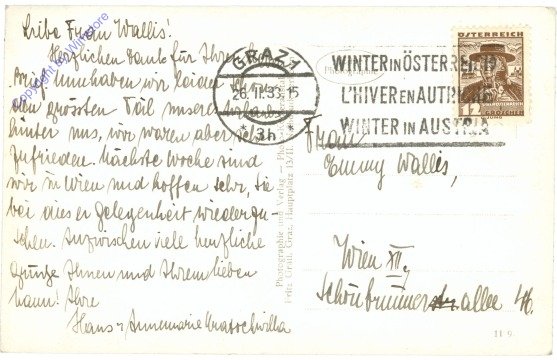 Liebe Frau Wallis!
Herzlichen Dank für Ihren
Brief. Nun haben wir leider
den grössten Teil unseres Urlaubs
hinter uns, wir waren aber sehr
zufrieden. Nächste Woche sind
wir in Wien und hoffen sehr, Sie
bei dieser Gelegenheit wiederzu-
sehen. Inzwischen viele herzliche
Grüsse Ihnen und Ihrem lieben
Mann! Ihre
Hans u. Annemarie
Copyright by
GRAZ 1
26. II. 35. 15
* 3h *
WINTER IN ÖSTERREICH
L'HIVER EN AUTRICHE
WINTER IN AUSTRIA
ÖSTERREICH
12
GROSCHEN
Photographie und Verlag
Graz, Hauptplatz
Frau
Emmy Wallis,
Wien XII,
Schönbrunner allee
11 9